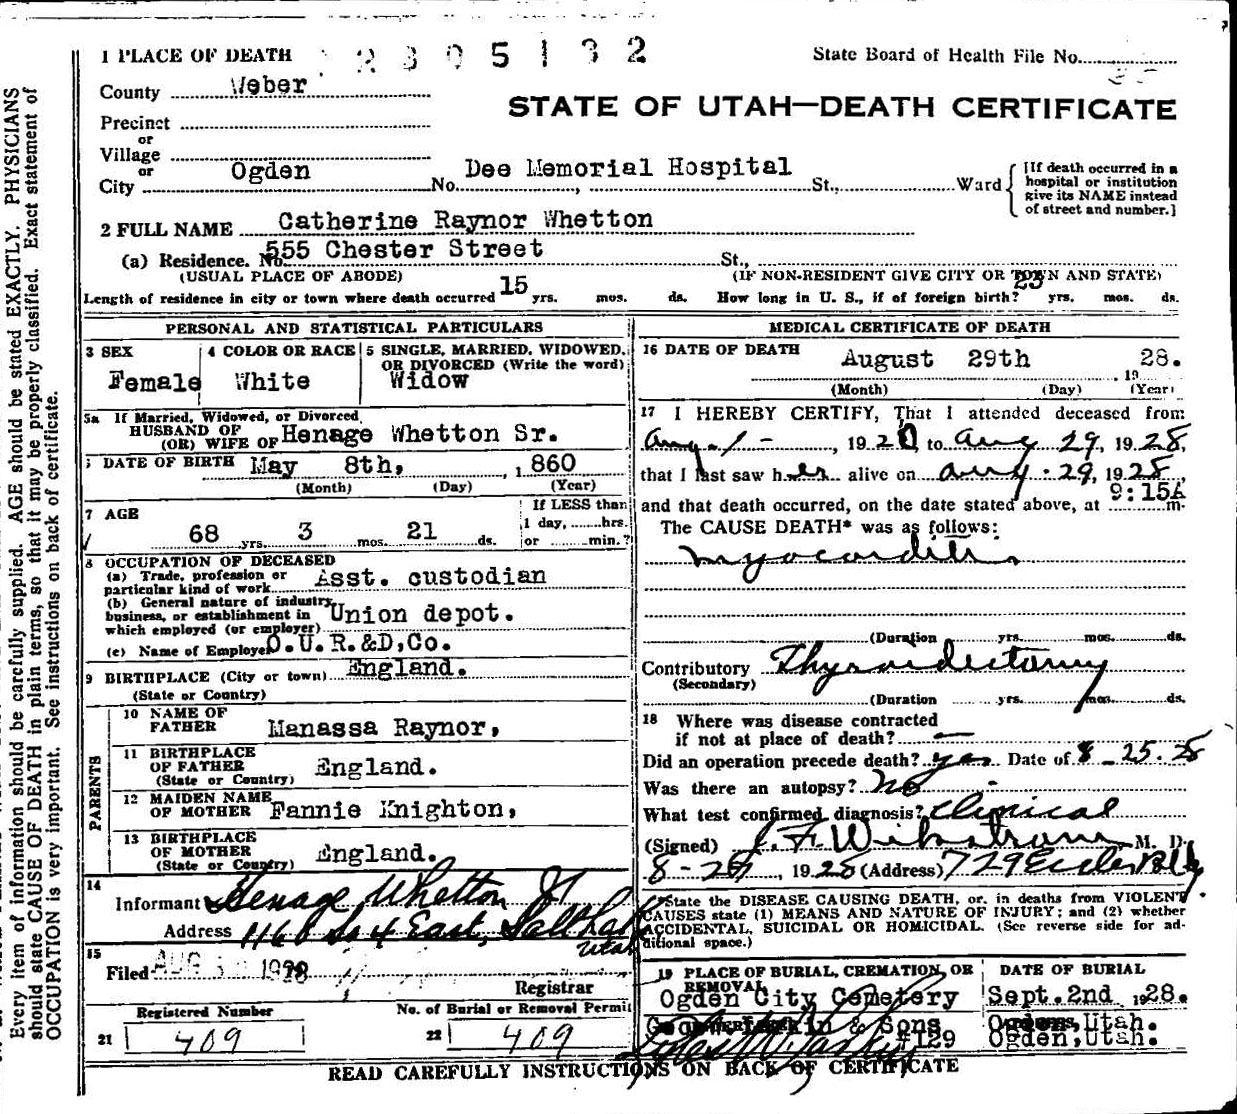 1 PLACE OF DEATH 2305132 State Board of Health File No.
County Weber
STATE OF UTAH—DEATH CERTIFICATE
Precinct
or
Village
or
City Ogden No. Dee Memorial Hospital St., Ward
[If death occurred in a hospital or institution give its NAME instead of street and number.]
2 FULL NAME Catherine Raynor Whetton
(a) Residence. No. 555 Chester Street St.,
(USUAL PLACE OF ABODE) (IF NON-RESIDENT GIVE CITY OR TOWN AND STATE)
Length of residence in city or town where death occurred 15 yrs. mos. ds. How long in U. S., if of foreign birth? 23 yrs. mos. ds.
PERSONAL AND STATISTICAL PARTICULARS
3 SEX Female
4 COLOR OR RACE White
5 SINGLE, MARRIED, WIDOWED, OR DIVORCED (Write the word) Widow
5a If Married, Widowed, or Divorced
HUSBAND OF
(OR) WIFE OF Henage Whetton Sr.
DATE OF BIRTH May 8th, 1860
(Month) (Day) (Year)
7 AGE 68 yrs. 3 mos. 21 ds.
If LESS than
1 day, hrs.
or min.?
8 OCCUPATION OF DECEASED
(a) Trade, profession or
particular kind of work Asst. custodian
(b) General nature of industry,
business, or establishment in
which employed (or employer) Union depot.
(c) Name of Employer O.U.R.&D,Co.
9 BIRTHPLACE (City or town) England.
(State or Country)
PARENTS
10 NAME OF
FATHER Manassa Raynor,
11 BIRTHPLACE
OF FATHER England.
(State or Country)
12 MAIDEN NAME
OF MOTHER Fannie Knighton,
13 BIRTHPLACE
OF MOTHER England.
(State or Country)
14
Informant Henage Whetton Jr
Address 1160 So 4 East, Salt Lake
Utah
15
Filed AUG 1928
Registrar
Registered Number No. of Burial or Removal Permit
21 409 22 409
MEDICAL CERTIFICATE OF DEATH
16 DATE OF DEATH August 29th 1928.
(Month) (Day) (Year)
17 I HEREBY CERTIFY, That I attended deceased from
Aug. 1 - , 1928, to Aug 29, 1928,
that I last saw her alive on Aug. 29, 1928,
and that death occurred, on the date stated above, at 9:15A m.
The CAUSE DEATH* was as follows:
Myocarditis
(Duration yrs. mos. ds.
Contributory Thyroidectomy
(Secondary)
(Duration yrs. mos. ds.
18 Where was disease contracted
if not at place of death? —
Did an operation precede death? yes Date of 8-25-28
Was there an autopsy? No -
What test confirmed diagnosis? Clinical
(Signed) M. D.
8- , 1928 (Address) 729 Eccles Bldg
*State the DISEASE CAUSING DEATH, or, in deaths from VIOLENT
CAUSES state (1) MEANS AND NATURE OF INJURY; and (2) whether
ACCIDENTAL, SUICIDAL OR HOMICIDAL. (See reverse side for ad-
ditional space.)
19 PLACE OF BURIAL, CREMATION, OR
REMOVAL
Ogden City Cemetery
DATE OF BURIAL
Sept.2nd 1928.
& Sons Ogden, Utah.
#129 Ogden, Utah.
READ CAREFULLY INSTRUCTIONS ON BACK OF CERTIFICATE
Every item of information should be carefully supplied. AGE should be stated EXACTLY. PHYSICIANS
should state CAUSE OF DEATH in plain terms, so that it may be properly classified. Exact statement of
OCCUPATION is very important. See instructions on back of certificate.